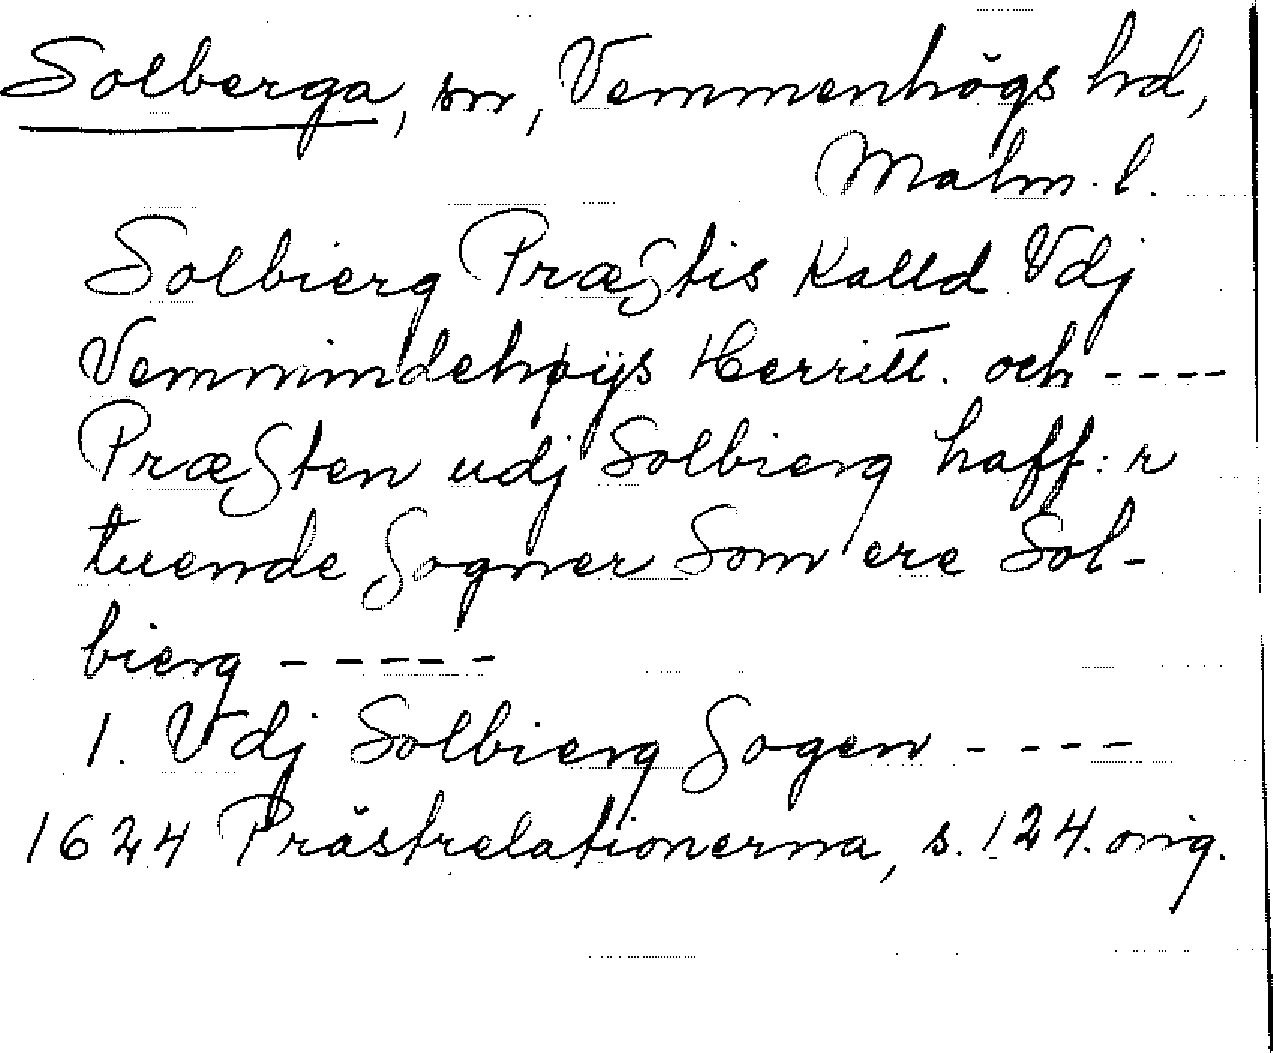 Solberga, sn, Vemmenhögs hd,
Malm. l.
Solbierg Præstis Kalld Vdj
Vemmindehøÿs Herritt. och ----
Præsten udj Solbierg haff:r
tuende Sogner Som ere Sol-
bierg -----
1. Vdj Solbierg Sogen ----
1624 Prästrelationerna, s. 124. orig.